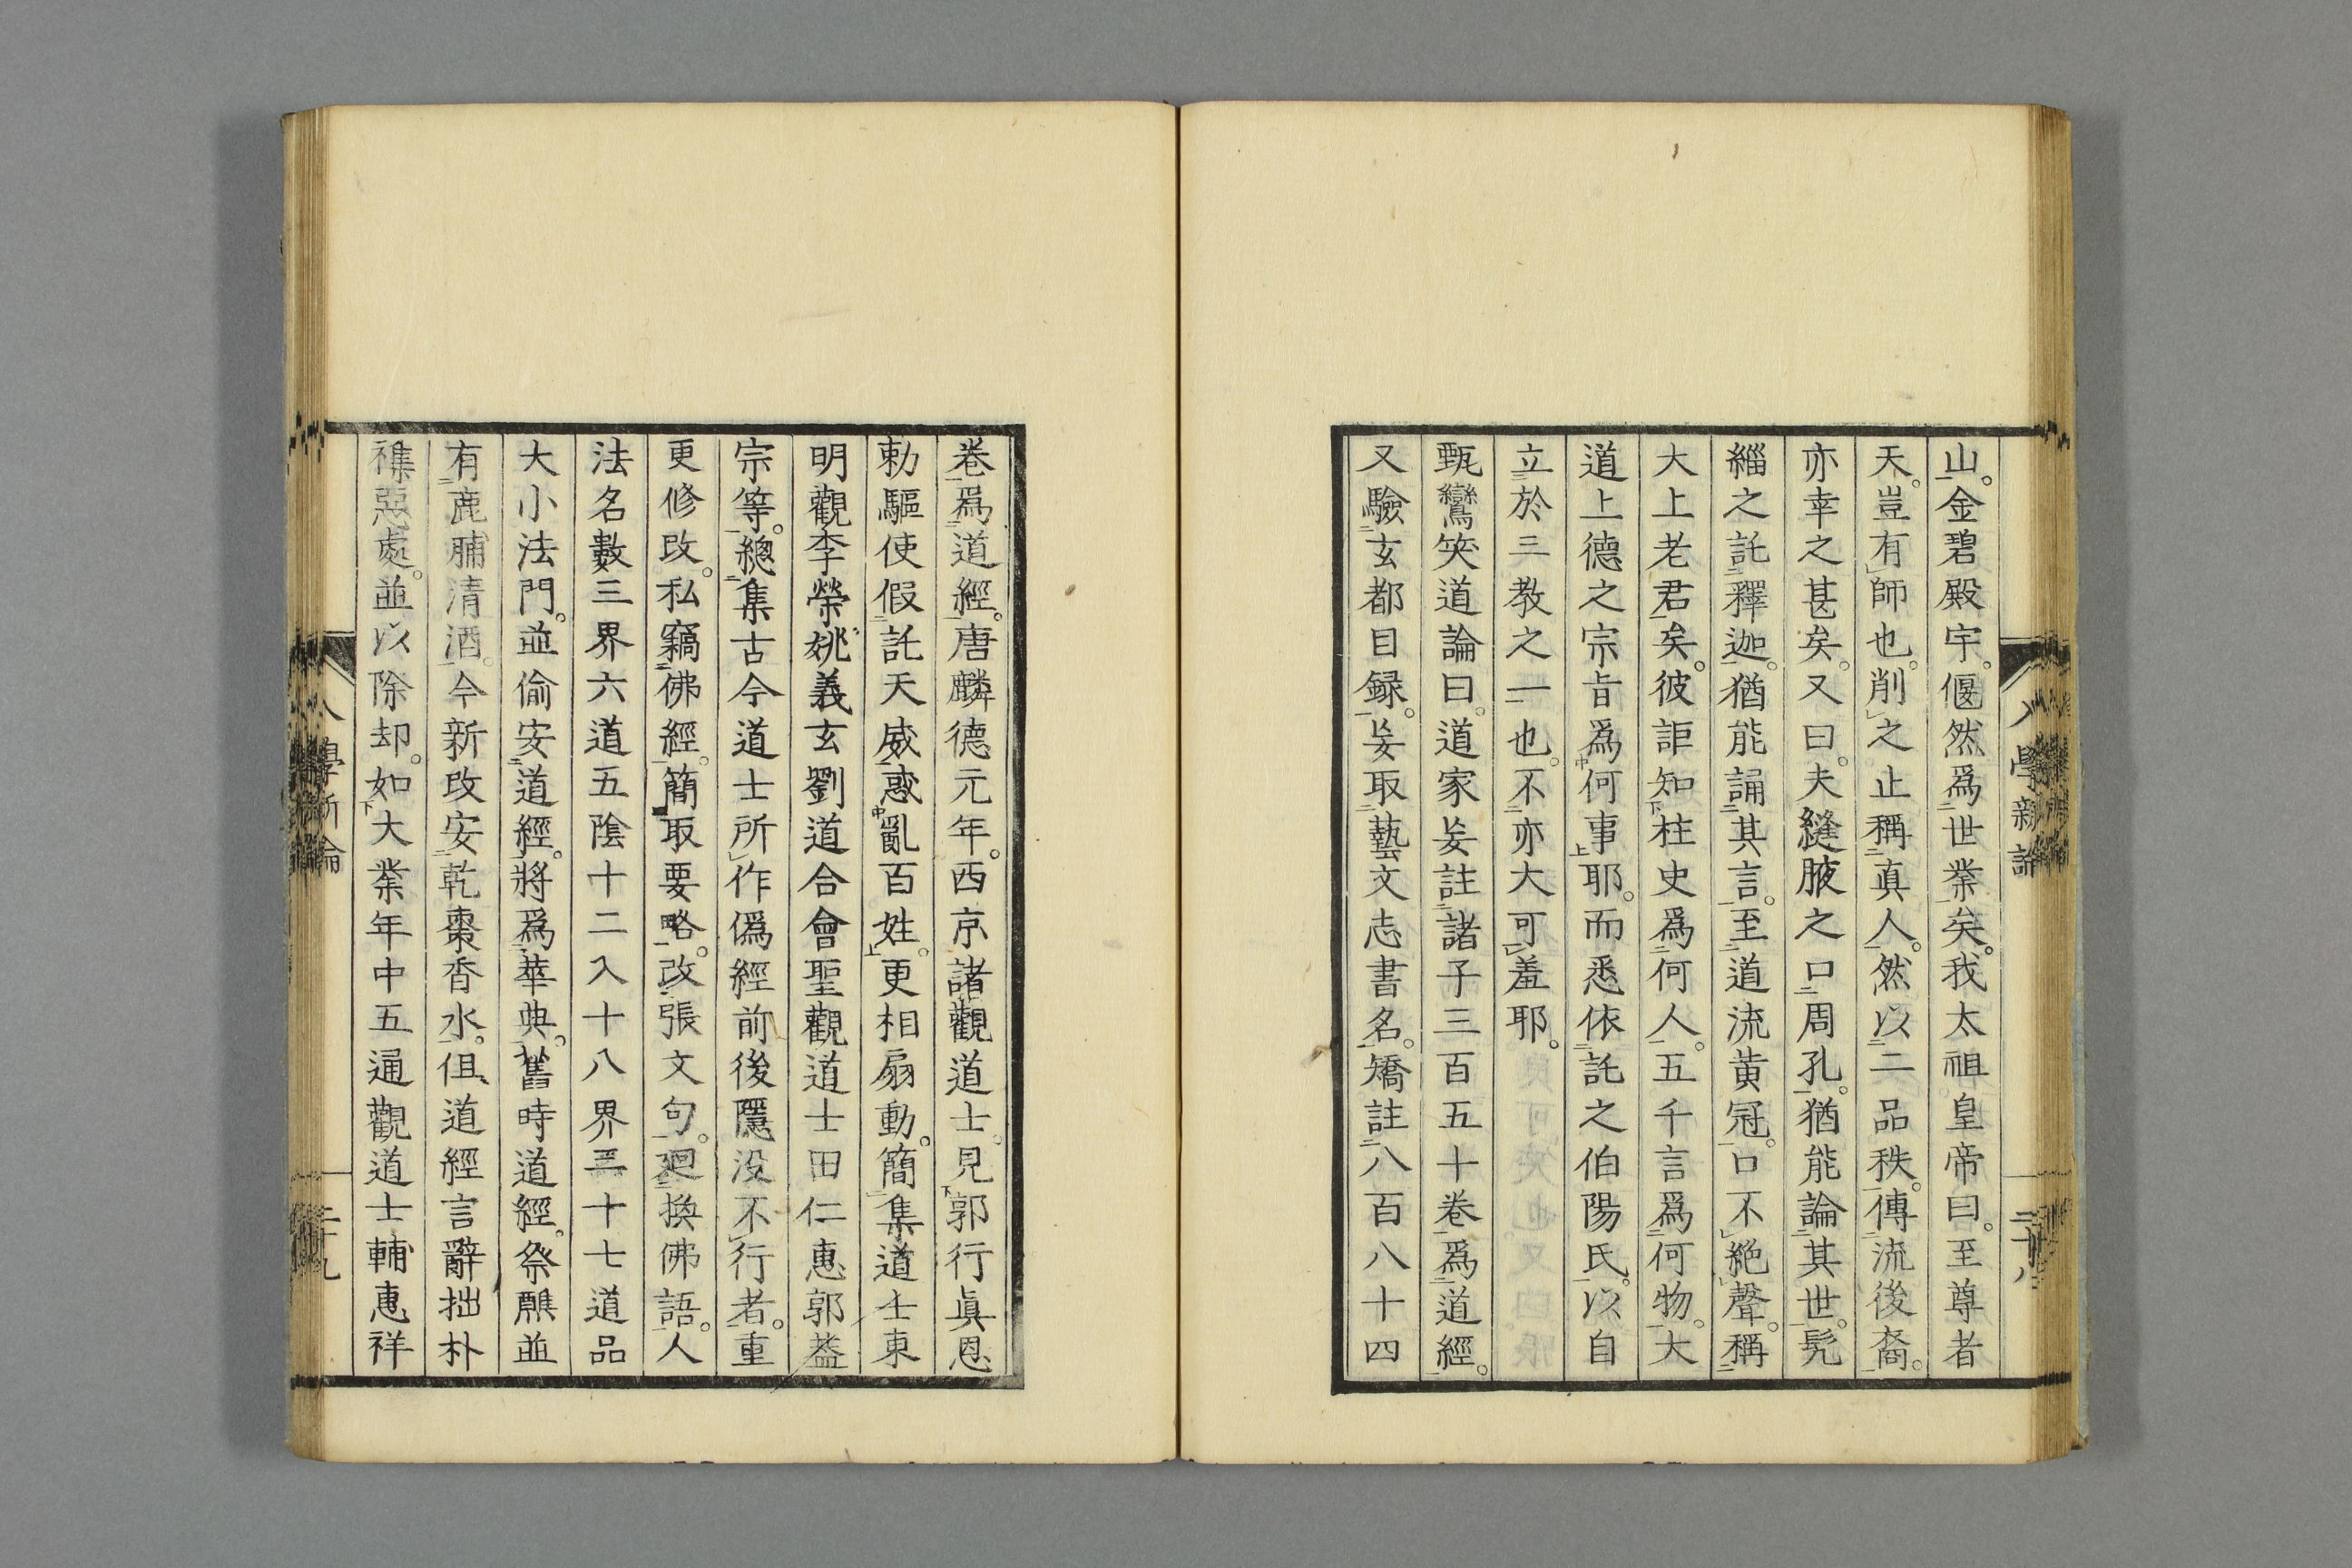 山。金碧殿宇。偃然爲世業矣。我太祖皇帝曰。至尊者
天。豈有師也。削之止稱真人。然以二品秩。傳流後裔。
亦幸之甚矣。又曰。夫縫腋之口周孔。猶能論其世。髡
緇之託釋迦。猶能誦其言。至道流黄冠。口不絶聲。稱
大上老君矣。彼詎知柱史爲何人。五千言爲何物。大
道上德之宗旨爲何事耶。而悉依託之伯陽氏。以自
立於三教之一也。不亦大可羞耶。
甄鸞笑道論曰。道家妄註諸子三百五十卷爲道經。
又驗玄都目録。妄取藝文志書名。矯註八百八十四
卷爲道經。唐麟德元年。西京諸觀道士。見郭行眞恩
勅驅使假託天威惑亂百姓。更相扇動。簡集道士東
明觀李榮姚義玄劉道合會聖觀道士田仁惠郭葢
宗等。總集古今道士所作僞經前後隱没不行者。重
更修改。私竊佛經。簡取要略。改張文句。廻換佛語。人
法名數三界六道五陰十二入十八界三十七道品
大小法門。並偷安道經。將爲華典。舊時道經。祭醮並
有鹿脯清酒。今新改安乾棗香水。但道經言辭拙朴
襍惡處。並以除却。如大業年中五通觀道士輔惠祥
八學新論